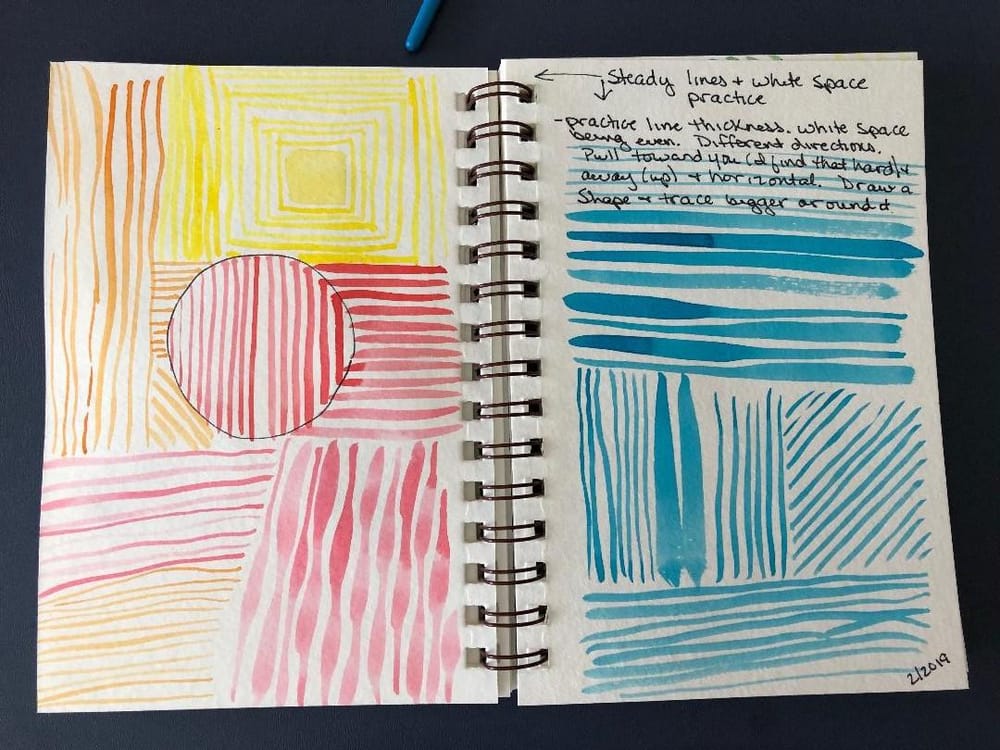 Steady lines + white space
practice
- practice line thickness. white space
being even. Different directions.
Pull toward you (I find that hard) +
away (up) + horizontal. Draw a
shape + trace bigger around it.
2/2019